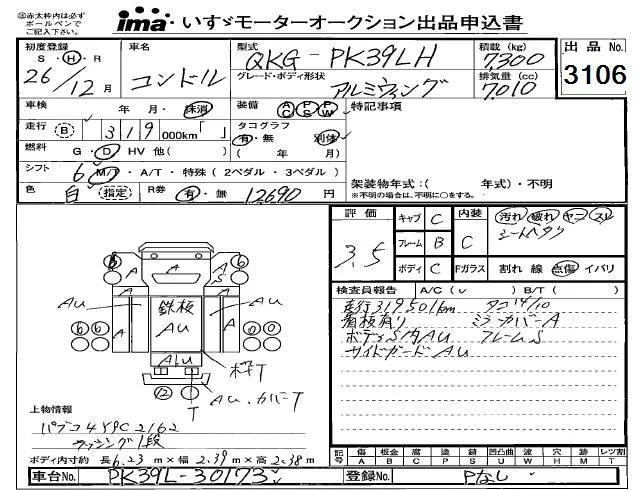 ㊟赤太枠内は必ず
ボールペンで
ご記入下さい。
ima・いすゞモーターオークション出品申込書
初度登録 S・H・R 26/12月
車名 コンドル
型式 QKG-PK39LH
グレード・ボディ形状 アルミウィング
積載(kg) 7,300
排気量(cc) 7,010
出品No. 3106
車検 年 月・抹消
装備 AC PS PW
特記事項
走行 B 319 000km「 」
タコグラフ 有・無 別体
( 年 月)
燃料 G・D HV 他( )
シフト 6 M/T・A/T・特殊(2ペダル・3ペダル)
架装物年式:( 年式)・不明
※不明の場合は、不明に○をする。
色 白 指定 R券 有・無 12690円
評価 3.5
キャブ C 内装 C 汚れ 破れ ヤニ スレ
シートヘタリ
フレーム B
ボディ C Fガラス 割れ 線 点傷 イバリ
検査員報告 A/C(✓) B/T( )
走行319501km タコ14/10
看板有り ミラーカバーA
ボディS内AU フレームS
サイドガードAU
A A A A S
鉄板 AU
AU A A AU
AU 枠T
6 6 6 0
12 T AU.カバーT
上物情報
パブコ4Y9C2162
ラッシング1段
ボディ内寸約 長6.23m×幅2.39m×高2.38m
記号 傷A 板金B 腐C 塗P 錆S 凹凸曲U 波W 穴H 跡M レンズ割T
車台No. PK39L-30173
登録No. Pなし